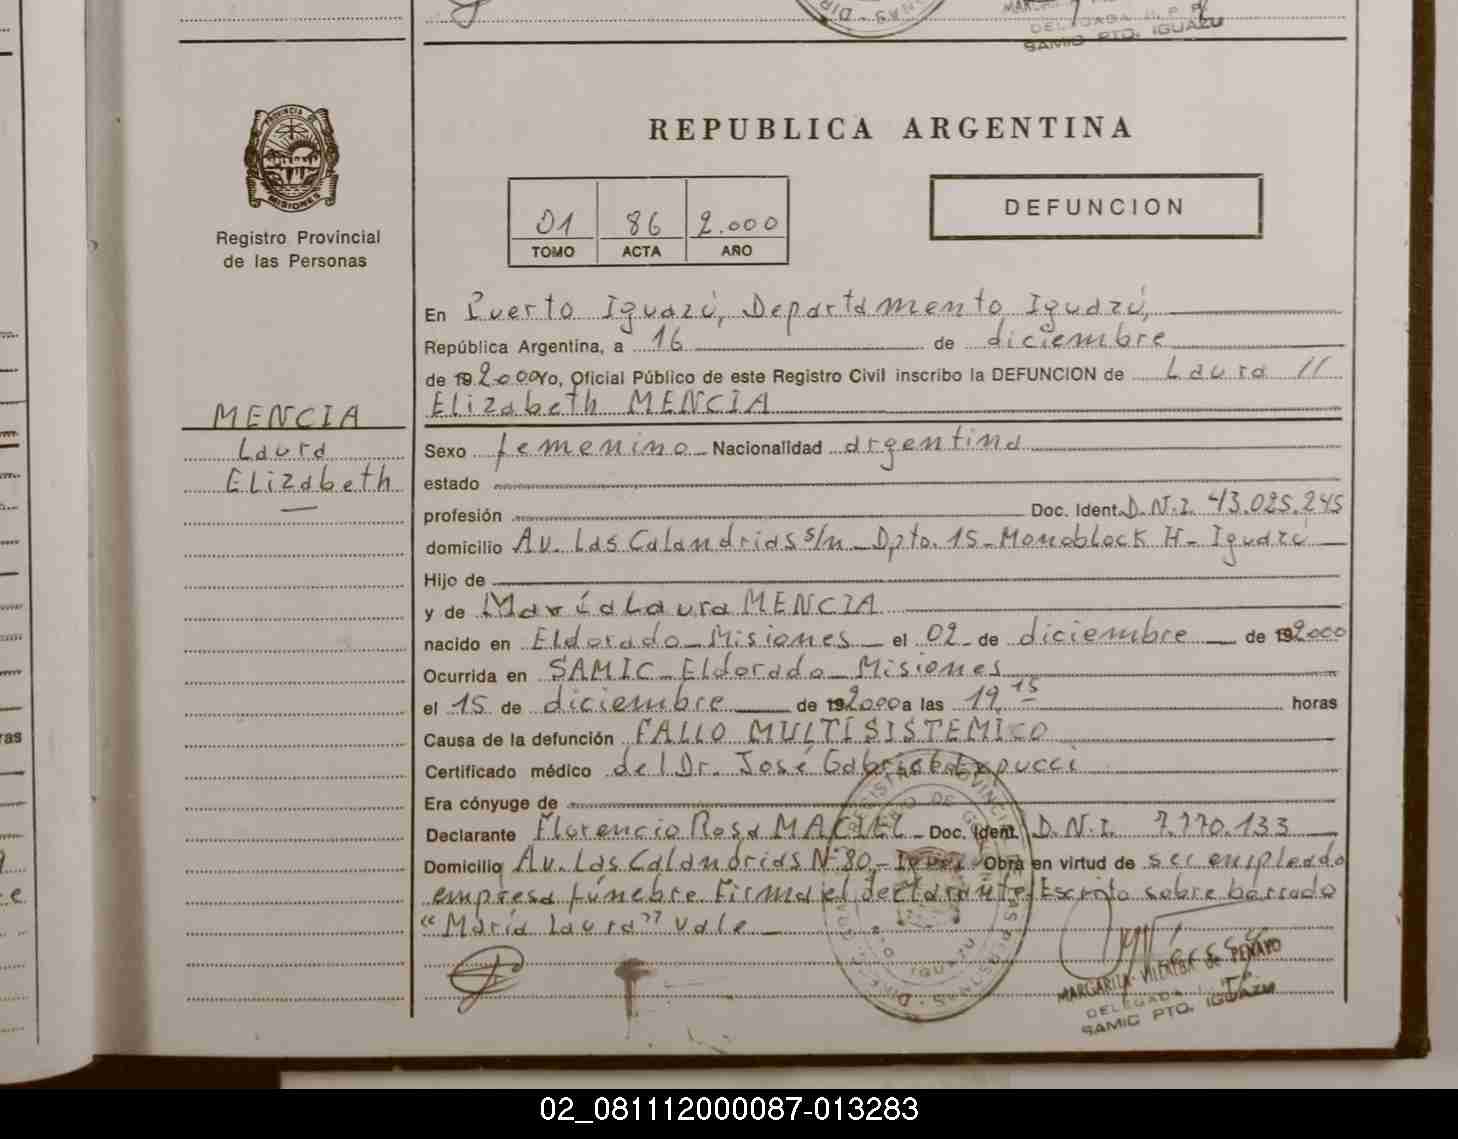 DELEGADA R. P. P.
SAMIC PTO. IGUAZU
PROVINCIA DE
MISIONES
Registro Provincial
de las Personas
REPUBLICA ARGENTINA
01 86 2.000
TOMO ACTA AÑO
DEFUNCION
En Puerto Iguazú, Departamento Iguazú,
República Argentina, a 16 de diciembre
de 19 2000 Yo, Oficial Público de este Registro Civil inscribo la DEFUNCION de Laura //
Elizabeth MENCIA
MENCIA
Laura
Elizabeth
Sexo femenino Nacionalidad argentina
estado
profesión Doc. Ident. D.N.I. 43.025.245
domicilio Av. Las Calandrias s/n - Dpto. 15 - Monoblock H - Iguazú
Hijo de
y de María Laura MENCIA
nacido en Eldorado - Misiones el 02 de diciembre de 19 2000
Ocurrida en SAMIC - Eldorado - Misiones
el 15 de diciembre de 19 2000 a las 19,15 horas
Causa de la defunción FALLO MULTISISTEMICO
Certificado médico del Dr. José Gabriel Expucci
Era cónyuge de
Declarante Florencio Rosa MACIEL - Doc. Ident. D.N.I. 7.770.133
Domicilio Av. Las Calandrias Nº 80 - Obra en virtud de ser empleado
empresa fúnebre. Firma el declarante. Escrito sobre borrado
"María Laura" vale
MARGARITA VILLALBA de PENAYO
DELEGADA
SAMIC PTO. IGUAZU
02_081112000087-013283